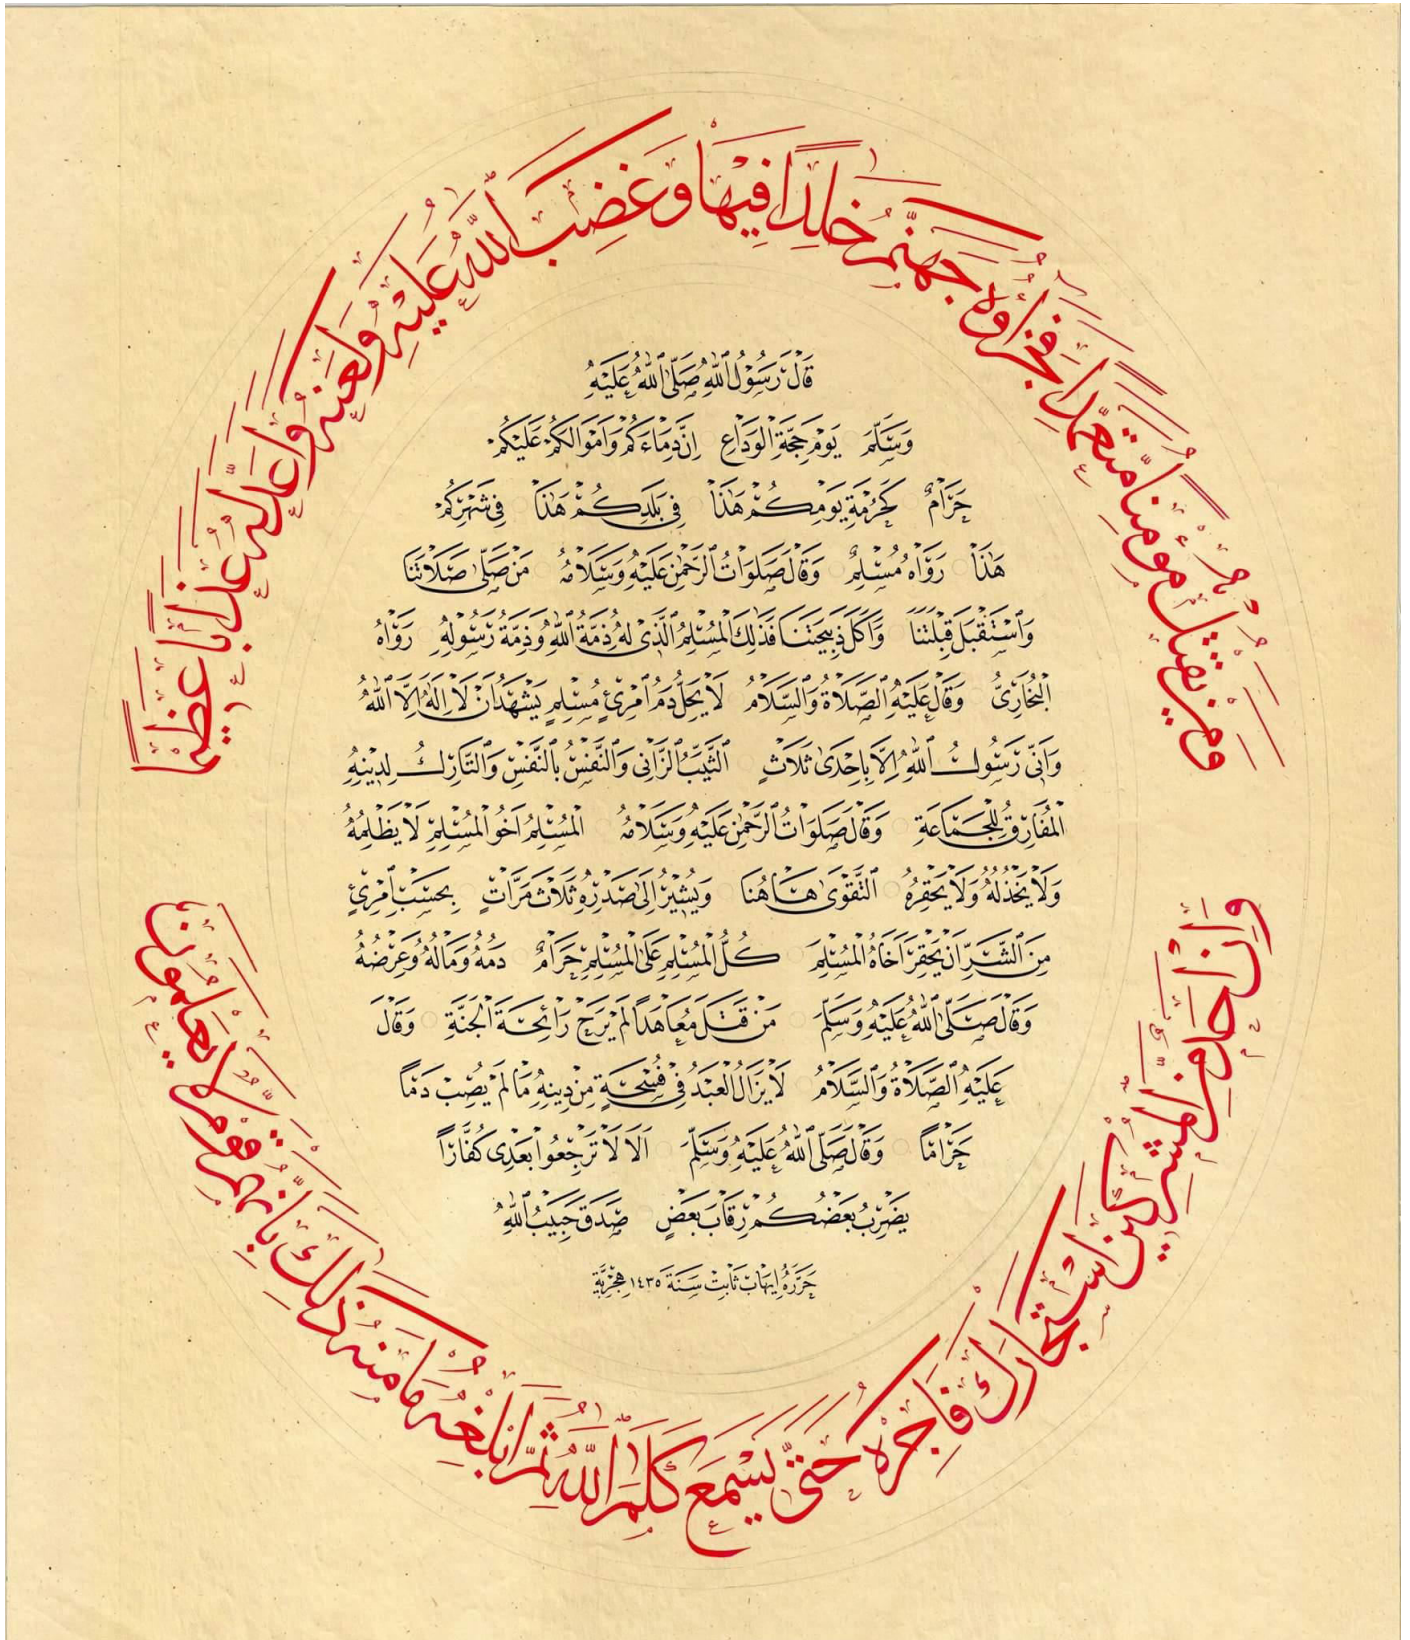 ومن يقتل مؤمنا متعمدا فجزاؤه جهنم خلدا فيها وغضب الله عليه ولعنه وأعد له عذابا عظيما
قَالَ رَسُوْلُ اللهِ صَلَّى اللهُ عَلَيْهِ
وَسَلَّمَ يَوْمَ حَجَّةِ الْوَدَاعِ إِنَّ دِمَاءَكُمْ وَأَمْوَالَكُمْ عَلَيْكُمْ
حَرَامٌ كَحُرْمَةِ يَوْمِكُمْ هٰذَا فِي بَلَدِكُمْ هٰذَا فِي شَهْرِكُمْ
هٰذَا رَوَاهُ مُسْلِمٌ وَقَالَ صَلَوَاتُ الرَّحْمٰنِ عَلَيْهِ وَسَلَامُهُ مَنْ صَلَّى صَلَاتَنَا
وَاسْتَقْبَلَ قِبْلَتَنَا وَأَكَلَ ذَبِيحَتَنَا فَذٰلِكَ الْمُسْلِمُ الَّذِي لَهُ ذِمَّةُ اللهِ وَذِمَّةُ رَسُوْلِهِ رَوَاهُ
الْبُخَارِيُّ وَقَالَ عَلَيْهِ الصَّلَاةُ وَالسَّلَامُ لَا يَحِلُّ دَمُ امْرِئٍ مُسْلِمٍ يَشْهَدُ أَنْ لَا إِلٰهَ إِلَّا اللهُ
وَأَنِّي رَسُولُ اللهِ إِلَّا بِإِحْدَى ثَلَاثٍ الثَّيِّبُ الزَّانِي وَالنَّفْسُ بِالنَّفْسِ وَالتَّارِكُ لِدِيْنِهِ
الْمُفَارِقُ لِلْجَمَاعَةِ وَقَالَ صَلَوَاتُ الرَّحْمٰنِ عَلَيْهِ وَسَلَامُهُ الْمُسْلِمُ أَخُو الْمُسْلِمِ لَا يَظْلِمُهُ
وَلَا يَخْذُلُهُ وَلَا يَحْقِرُهُ التَّقْوَى هَاهُنَا وَيُشِيْرُ إِلَى صَدْرِهِ ثَلَاثَ مَرَّاتٍ بِحَسْبِ امْرِئٍ
مِنَ الشَّرِّ أَنْ يَحْقِرَ أَخَاهُ الْمُسْلِمَ كُلُّ الْمُسْلِمِ عَلَى الْمُسْلِمِ حَرَامٌ دَمُهُ وَمَالُهُ وَعِرْضُهُ
وَقَالَ صَلَّى اللهُ عَلَيْهِ وَسَلَّمَ مَنْ قَتَلَ مُعَاهَدًا لَمْ يَرَحْ رَائِحَةَ الْجَنَّةِ وَقَالَ
عَلَيْهِ الصَّلَاةُ وَالسَّلَامُ لَا يَزَالُ الْعَبْدُ فِي فُسْحَةٍ مِنْ دِينِهِ مَا لَمْ يُصِبْ دَمًا
حَرَامًا وَقَالَ صَلَّى اللهُ عَلَيْهِ وَسَلَّمَ أَلَا لَا تَرْجِعُوا بَعْدِي كُفَّارًا
يَضْرِبُ بَعْضُكُمْ رِقَابَ بَعْضٍ صَدَقَ حَبِيْبُ اللهِ
حَرَّرَهُ إِيْهَابْ ثَابِتْ سَنَةَ ١٤٣٥ هِجْرِيَّة
وإن أحد من المشركين استجارك فأجره حتى يسمع كلم الله ثم أبلغه مأمنه ذلك بأنهم قوم لا يعلمون